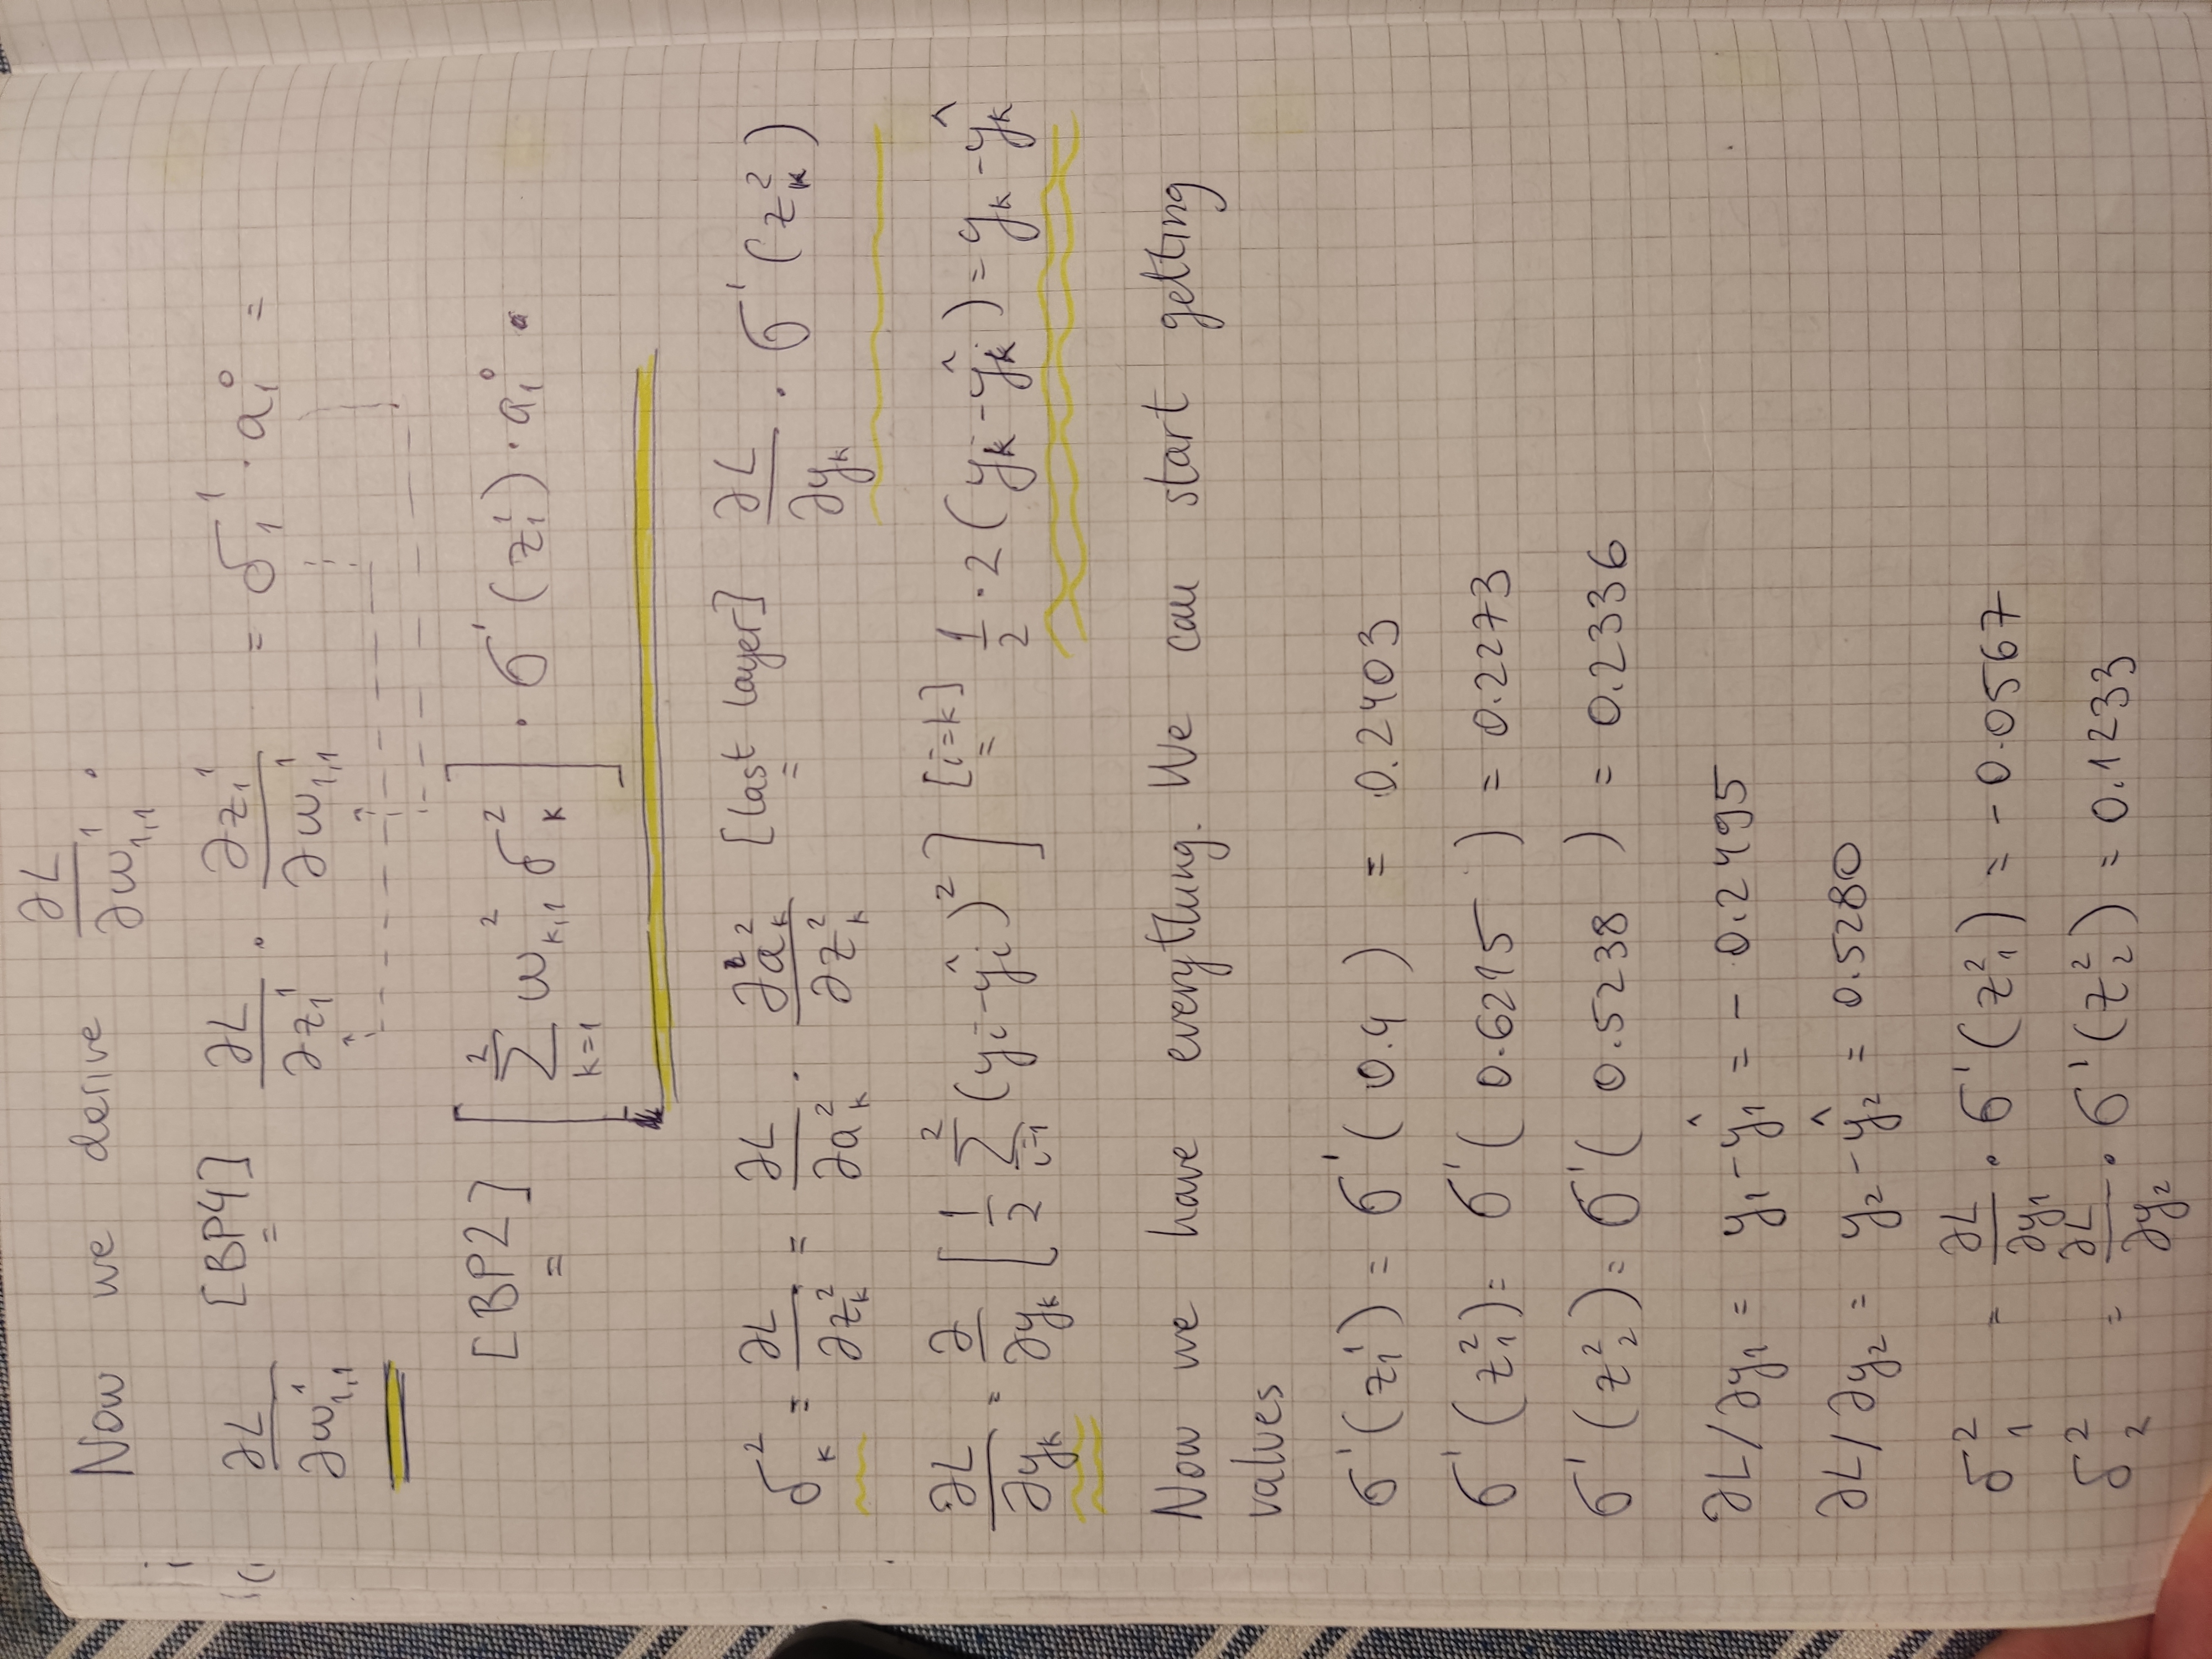 Now we derive ∂L/∂w¹₁,₁ .
∂L/∂w¹₁,₁ [BP4] = ∂L/∂z¹₁ · ∂z¹₁/∂w¹₁,₁ = δ¹₁ · a⁰₁ =
[BP2] = [ ∑ₖ₌₁² w²ₖ,₁ δ²ₖ ] · σ'(z¹₁) · a⁰₁ .
δ²ₖ = ∂L/∂z²ₖ = ∂L/∂a²ₖ · ∂a²ₖ/∂z²ₖ [last layer] = ∂L/∂yₖ · σ'(z²ₖ)
∂L/∂yₖ = ∂/∂yₖ [ 1/2 ∑ᵢ₌₁² (yᵢ-ŷᵢ)² ] [i=k] = 1/2 · 2 (yₖ-ŷₖ) = yₖ-ŷₖ
Now we have everything. We can start getting
values
σ'(z¹₁) = σ'( 0.4 ) = 0.2403
σ'(z²₁) = σ'( 0.6215 ) = 0.2273
σ'(z²₂) = σ'( 0.5238 ) = 0.2336
∂L/∂y₁ = y₁-ŷ₁ = - 0.2495
∂L/∂y₂ = y₂-ŷ₂ = 0.5280
δ²₁ = ∂L/∂y₁ · σ'(z²₁) = -0.0567
δ²₂ = ∂L/∂y₂ · σ'(z²₂) = 0.1233